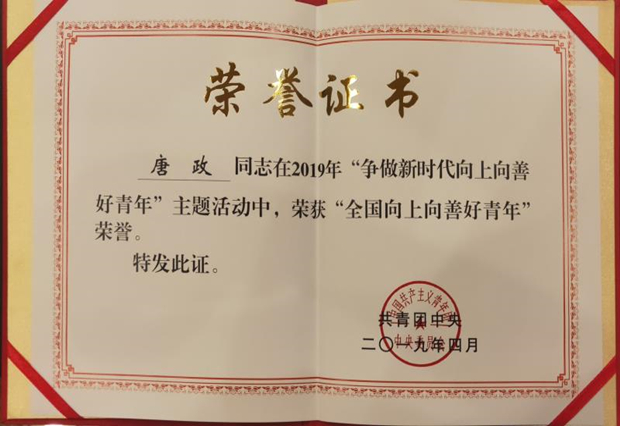 荣誉证书
唐政 同志在2019年“争做新时代向上向善
好青年”主题活动中，荣获“全国向上向善好青年”
荣誉。
特发此证。
共青团中央
二〇一九年四月
中国共产主义青年团
中央委员会